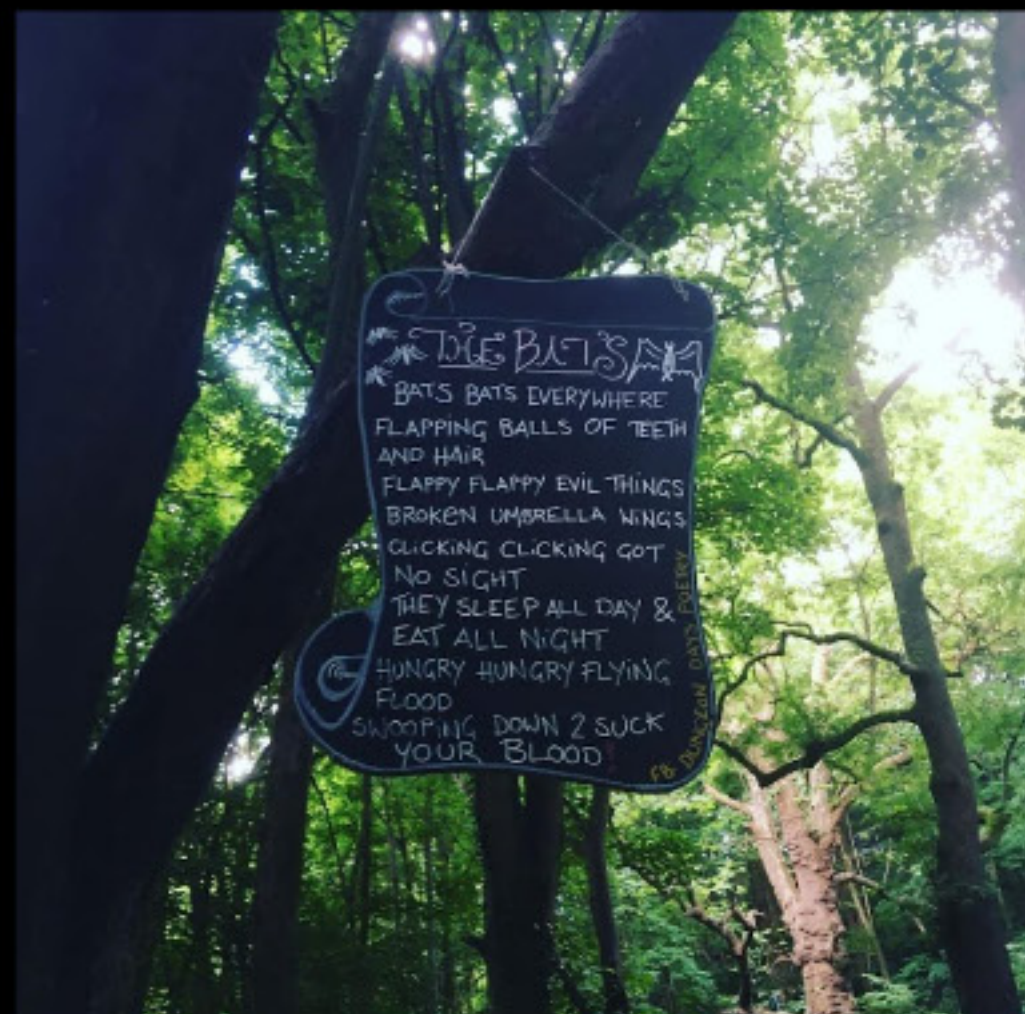 THE BATS
BATS BATS EVERYWHERE
FLAPPING BALLS OF TEETH
AND HAIR
FLAPPY FLAPPY EVIL THINGS
BROKEN UMBRELLA WINGS
CLICKING CLICKING GOT
NO SIGHT
THEY SLEEP ALL DAY &
EAT ALL NIGHT
HUNGRY HUNGRY FLYING
FLOOD
SWOOPING DOWN 2 SUCK
YOUR BLOOD!
FB: DUNGEON DAYS POETRY